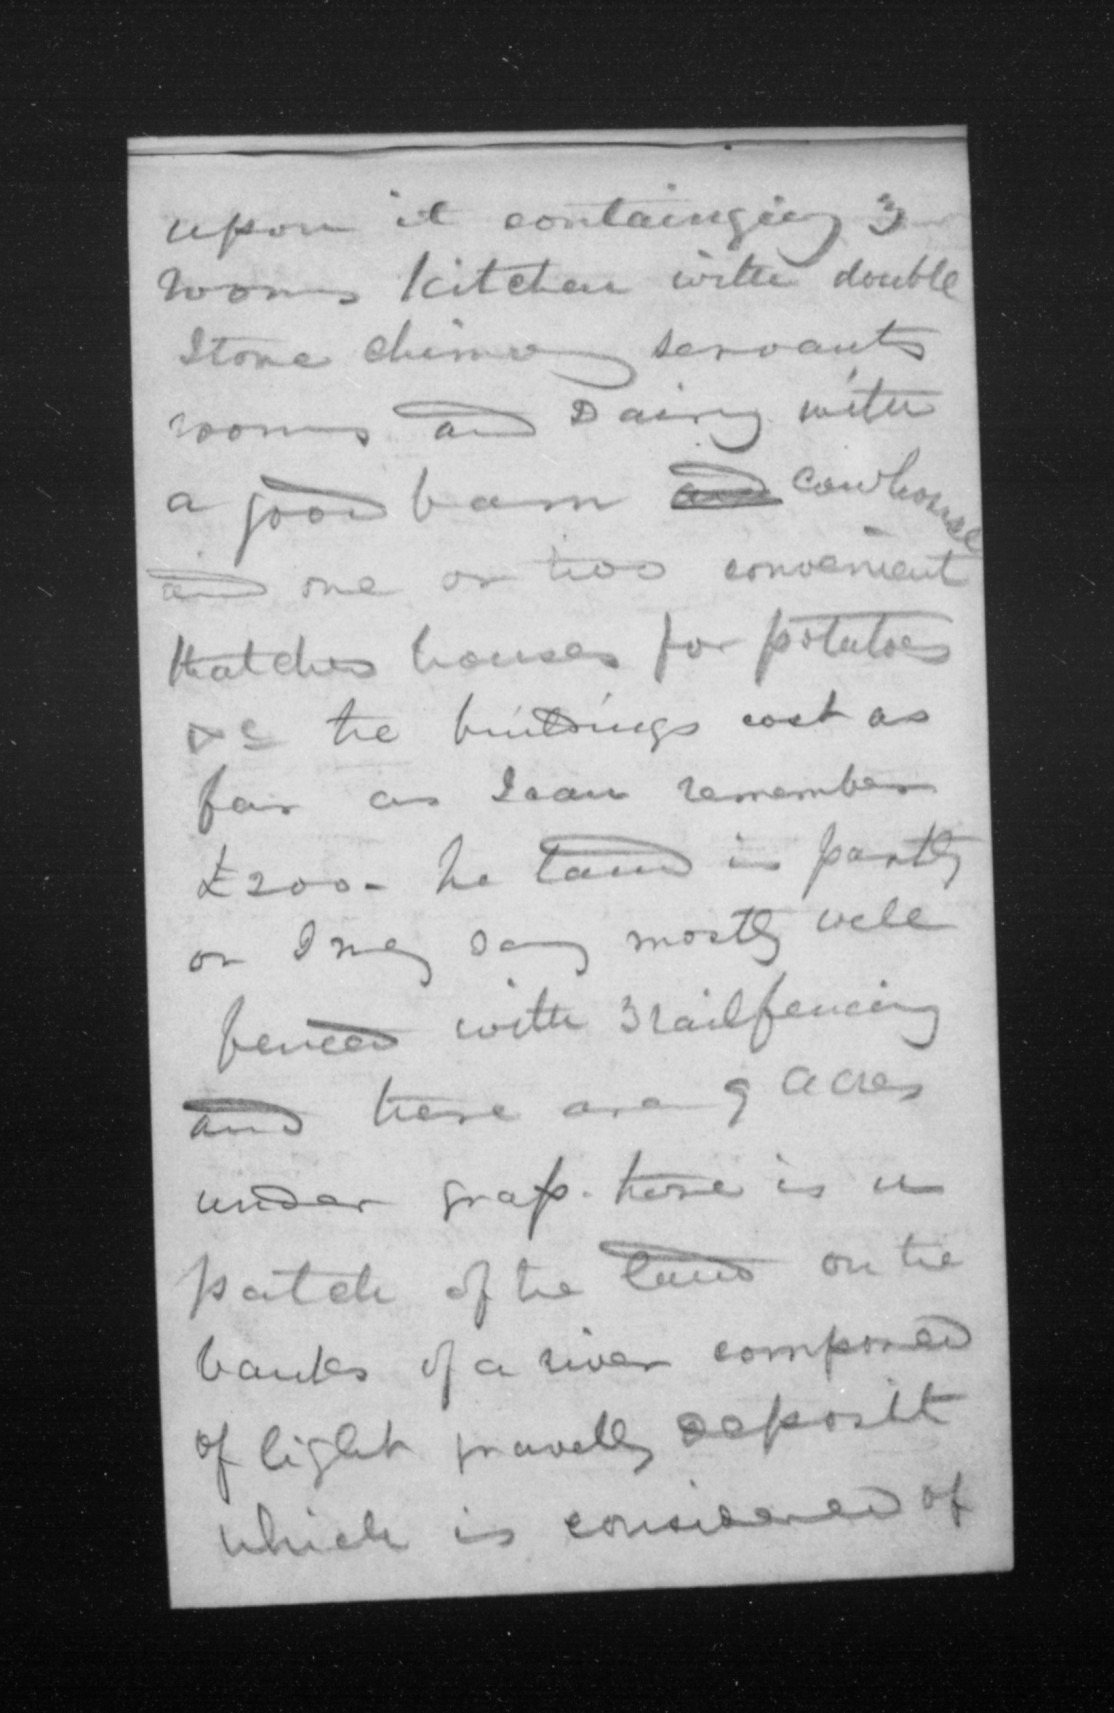 upon it containging 3
rooms kitchen with double
stone chimney servants
rooms and Dairy with
a good barn ~~and~~ cowhouse
and one or two convenient
thatched houses for potatoes
&c the buildings cost as
far as I can remember
£200 - he land is partly
or I may say mostly well
fenced with 3 rail fencing
and there are 9 acres
under grass. there is a
patch of the land on the
banks of a river composed
of light gravelly deposit
which is considered of